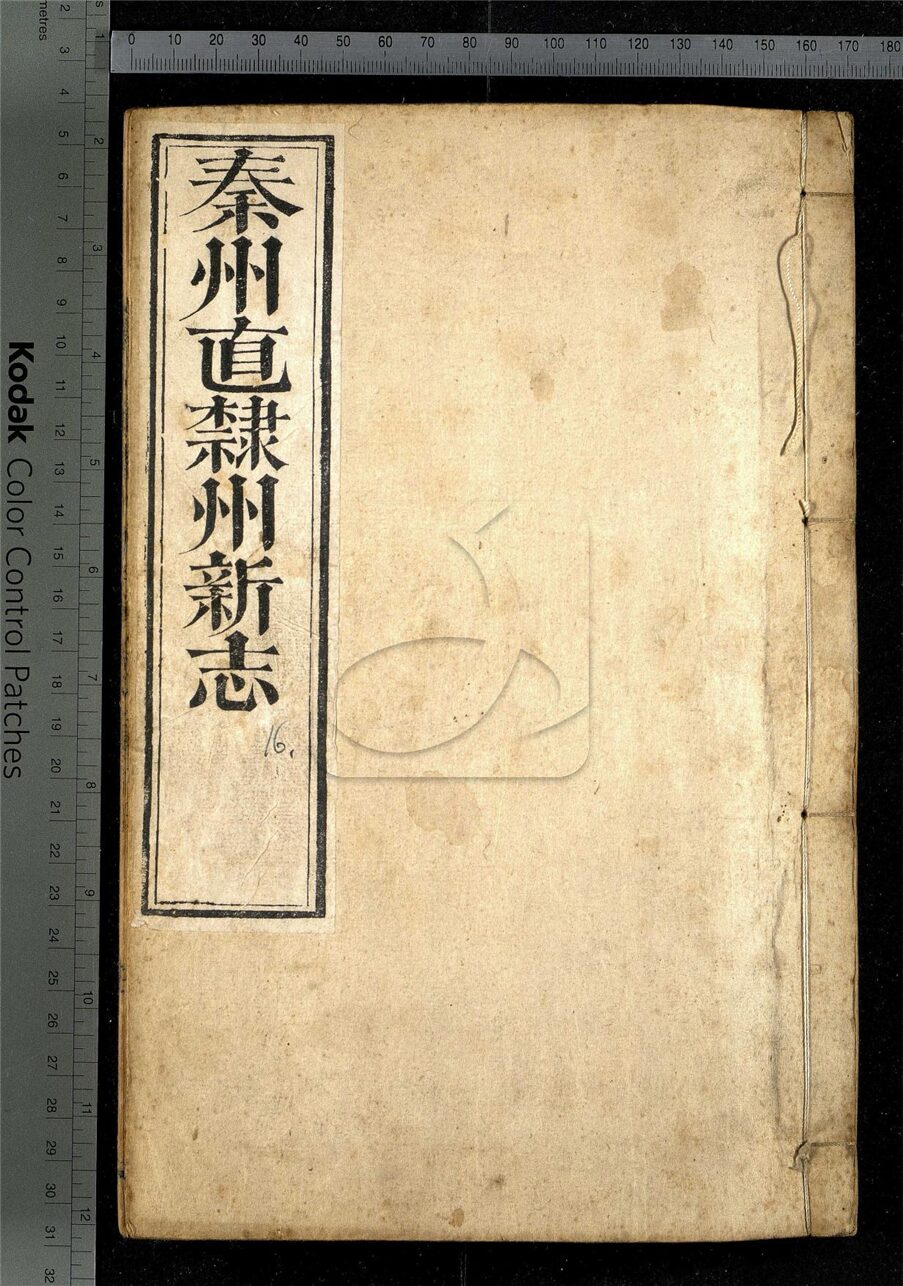 秦州直隸州新志
16.
0 10 20 30 40 50 60 70 80 90 100 110 120 130 140 150 160 170 180
Kodak Color Control Patches
metres
2 3 4 5 6 7 8 9 10 11 12 13 14 15 16 17 18 19 20 21 22 23 24 25 26 27 28 29 30 31 32
1 2 3 4 5 6 7 8 9 10 11 12